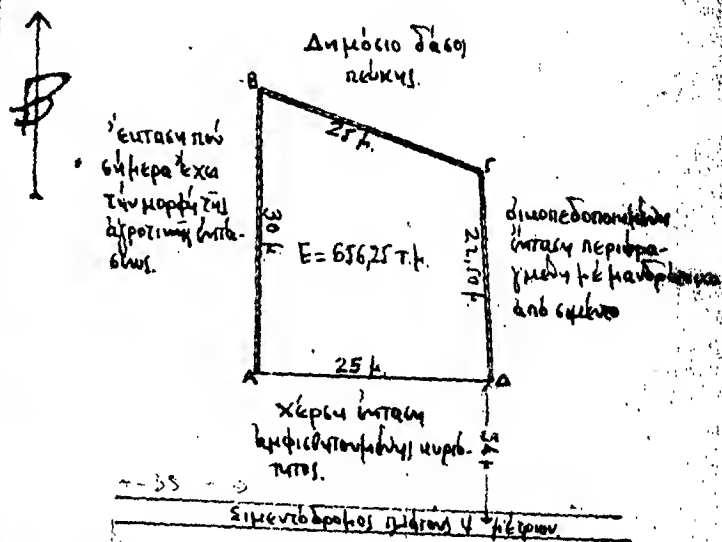 Δημόσιο δάσος
πεύκης.
Β
25 μ.
Γ
ἔκταση πού
σήμερα ἔχει
τήν μορφή τῆς
ἀγροτικῆς ἐκτά-
σεως.
30 μ.
Ε = 656,25 τ.μ.
22,50 μ.
οἰκοπεδοποιημένη
ἔκταση περιφρα-
γμένη μέ
ἀπό σιμέντο
Α
25 μ.
Δ
χέρσα ἔκταση
ἀμφισβητουμένης κυριό-
τητος.
μ
Σιμεντόδρομος πλάτους 4 μέτρων